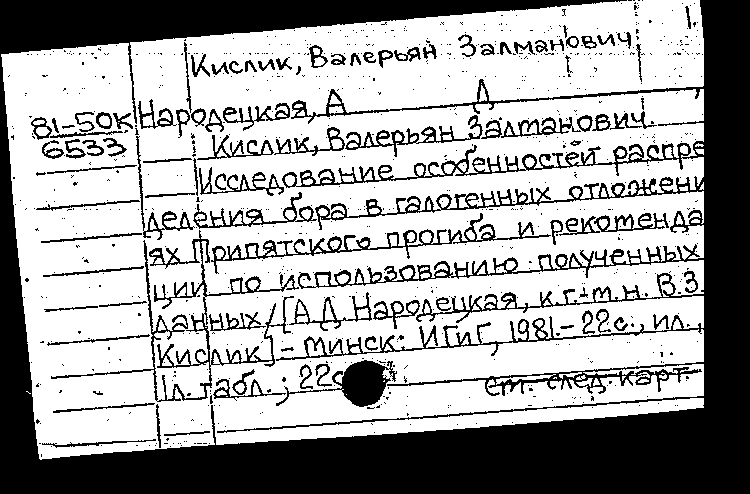 1.
Кислик, Валерьян Залманович
81-50К Народецкая, А Д
6533 Кислик, Валерьян Залманович.
Исследование особенностей распре
деления бора в галогенных отложени
ях Припятского прогиба и рекоменда
ции по использованию полученных
данных/[А.Д. Народецкая, к.г.-м.н. В.З.
Кислик] - Минск: ИГиГ, 1981.- 22с., ил.,
1л. табл.; 22с
см. след. карт.